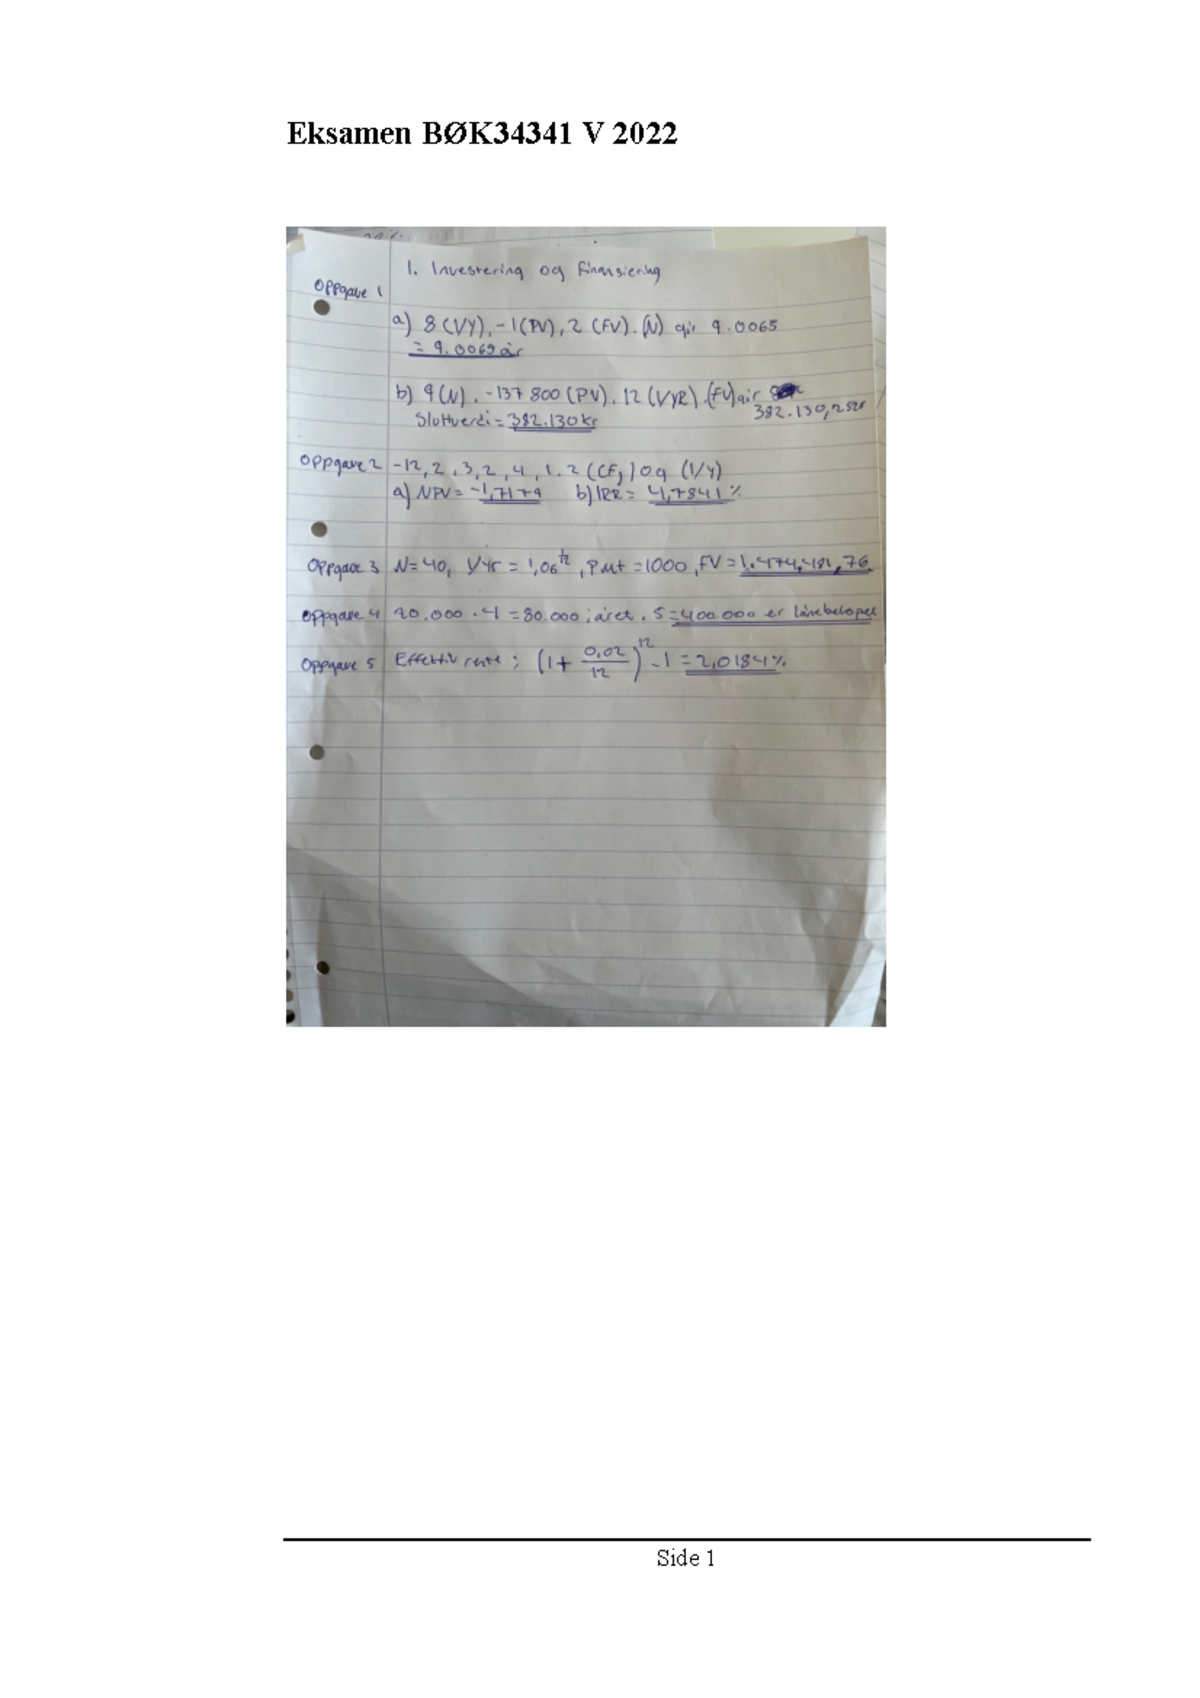 Eksamen BØK34341 V 2022
1. Investering og finansiering
Oppgave 1
a) 8 (I/Y), -1 (PV), 2 (FV). (N) gir 9.0065
= 9.0065 år
b) 9 (N), -137 800 (PV), 12 (I/YR). (FV) gir
382.130,252
Sluttverdi = 382.130 kr
Oppgave 2 -12, 2, 3, 2, 4, 1, 2 (CFj) og (I/Y)
a) NPV = -1,7179 b) IRR = 4,7841 %
Oppgave 3 N = 40, I/Yr = 1,06^1/12, Pmt = 1000, FV =
Oppgave 4 20.000 · 4 = 80.000 i året . 5 = 400.000 er lånebeløpet
Oppgave 5 Effektiv rente : (1 + 0,02/12)^12 - 1 = 2,0184 %
Side 1